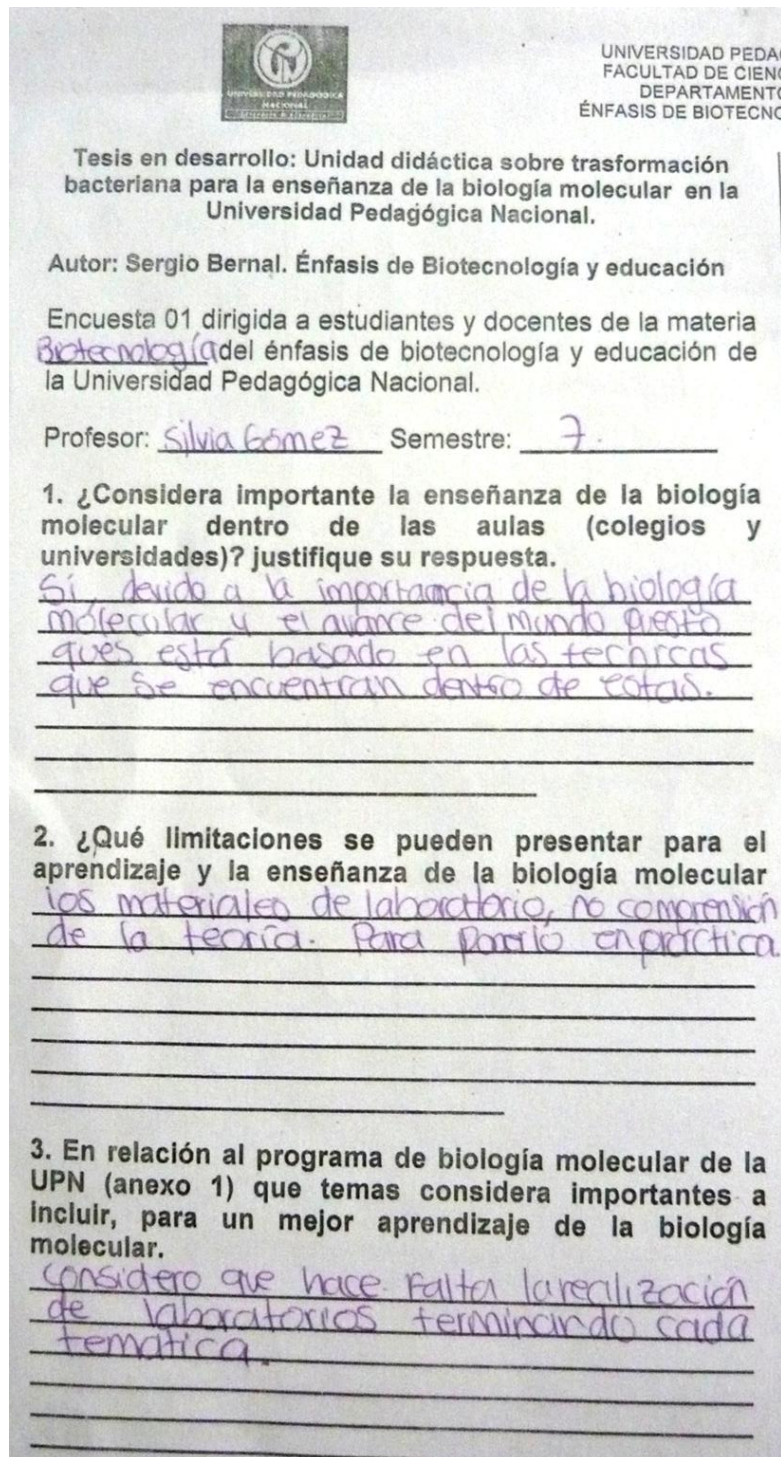 UNIVERSIDAD PEDAGOGICA
NACIONAL
UNIVERSIDAD PEDA
FACULTAD DE CIEN
DEPARTAMENTO
ÉNFASIS DE BIOTECNO
Tesis en desarrollo: Unidad didáctica sobre trasformación
bacteriana para la enseñanza de la biología molecular en la
Universidad Pedagógica Nacional.
Autor: Sergio Bernal. Énfasis de Biotecnología y educación
Encuesta 01 dirigida a estudiantes y docentes de la materia
Biotecnología del énfasis de biotecnología y educación de
la Universidad Pedagógica Nacional.
Profesor: Silvia Gómez Semestre: 7.
1. ¿Considera importante la enseñanza de la biología
molecular dentro de las aulas (colegios y
universidades)? justifique su respuesta.
Si, devido a la importancia de la biología
molecular y el avance del mundo puesto
ques está basado en las tecnicas
que se encuentran dentro de estas.
2. ¿Qué limitaciones se pueden presentar para el
aprendizaje y la enseñanza de la biología molecular
los materiales de laboratorio, no comprensión
de la teoría. Para ponerlo en práctica
3. En relación al programa de biología molecular de la
UPN (anexo 1) que temas considera importantes a
incluir, para un mejor aprendizaje de la biología
molecular.
considero que hace falta la realización
de laboratorios terminando cada
tematica.